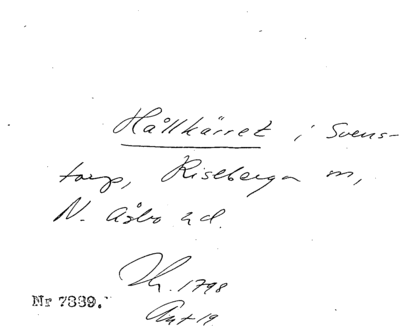 Hållkärret i Svens-
torp, Riseberga sn,
N. Åsbo hd.
Nr 7339.
1798
Akt 19